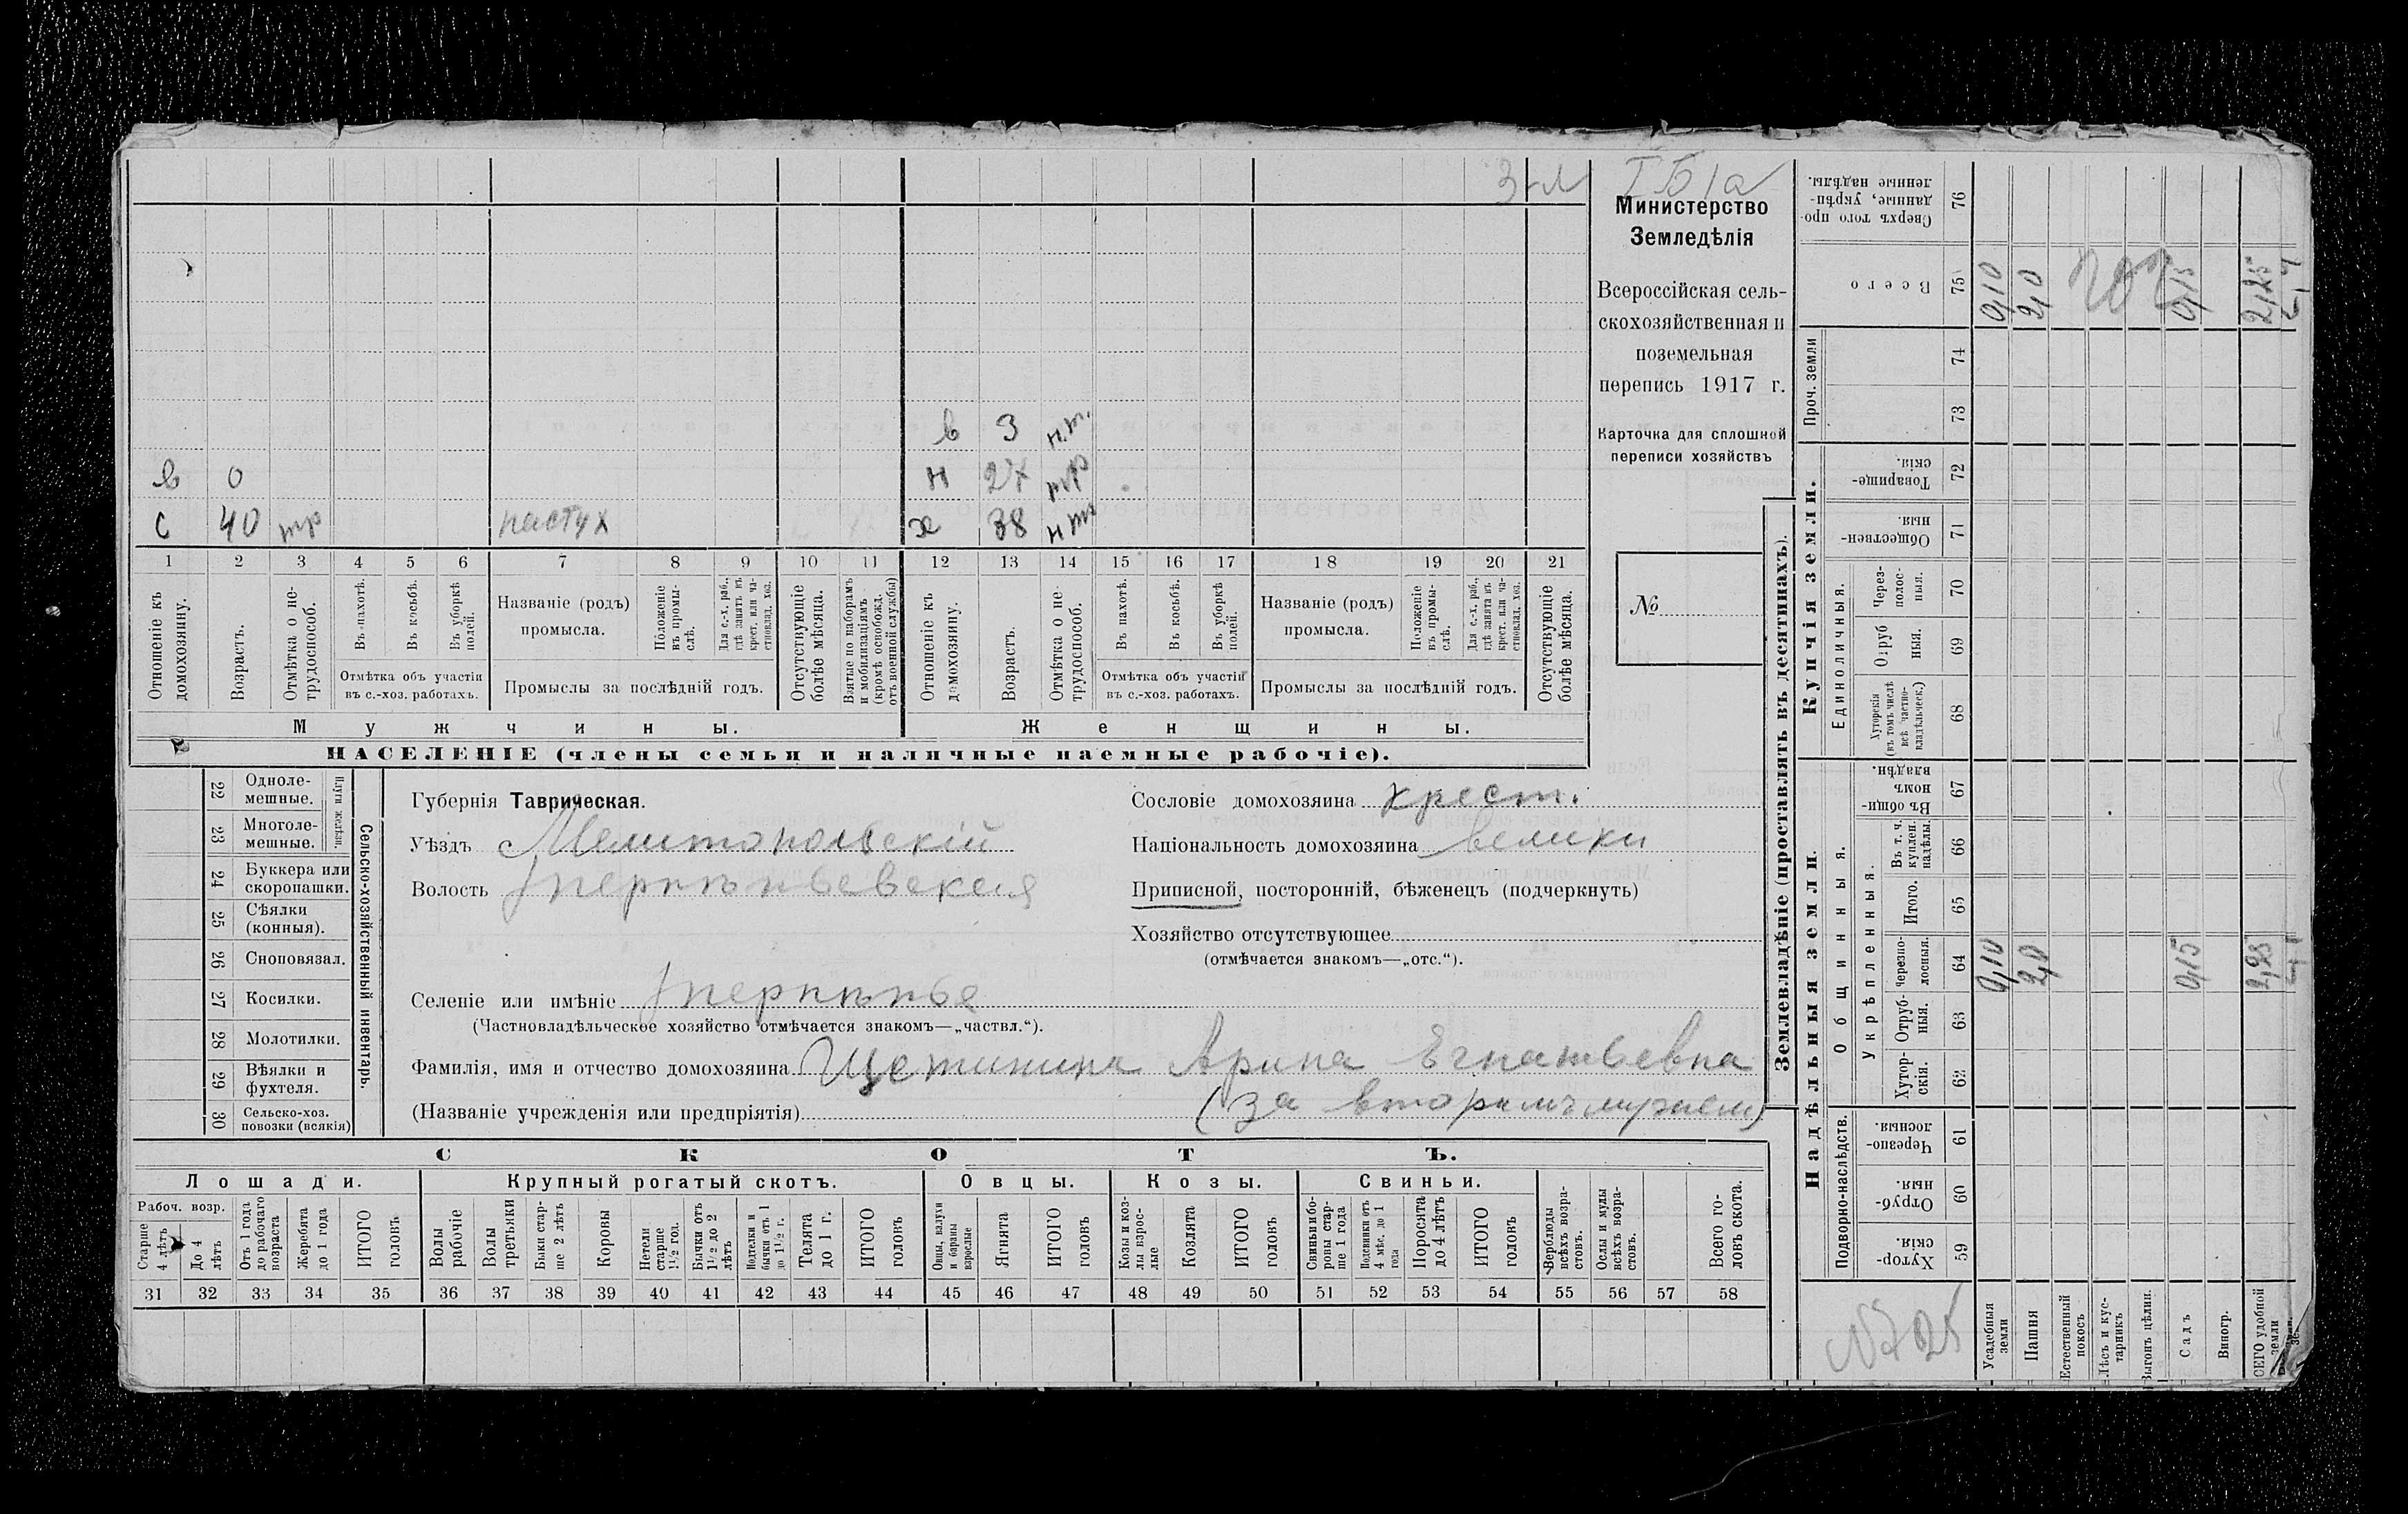 3-л
І Б 1а
Министерство
Земледѣлія
Всероссійская сель-
скохозяйственная и
поземельная
перепись 1917 г.
Карточка для сплошной
переписи хозяйствъ
№
в 3 н.т.
в 0 н 27 тр
с 40 тр пастух ж 38 н тр
1 2 3 4 5 6 7 8 9 10 11 12 13 14 15 16 17 18 19 20 21
Отношеніе къ домохозяину.
Возрастъ.
Отмѣтка о не-трудоспособ.
Въ пахотѣ.
Въ косьбѣ.
Въ уборкѣ полей.
Отмѣтка объ участіи въ с.-хоз. работахъ.
Названіе (родъ) промысла.
Положеніе въ промы-слѣ.
Для с.-х. раб., гдѣ занятъ въ крест. или ча-стновлад. хоз.
Промыслы за послѣдній годъ.
Отсутствующіе болѣе мѣсяца.
Взятые по наборамъ и мобилизаціямъ (кромѣ освобожд. отъ военной службы)
Отношеніе къ домохозяину.
Возрастъ.
Отмѣтка о не-трудоспособ.
Въ пахотѣ.
Въ косьбѣ.
Въ уборкѣ полей.
Отмѣтка объ участіи въ с.-хоз. работахъ.
Названіе (родъ) промысла.
Положеніе въ промы-слѣ.
Для с.-х. раб., гдѣ занята въ крест. или ча-стновлад. хоз.
Промыслы за послѣдній годъ.
Отсутствующіе болѣе мѣсяца.
Мужчины.
Женщины.
НАСЕЛЕНІЕ (члены семьи и наличные наемные рабочіе).
22 Одноле-мешные.
23 Многоле-мешные.
Плуги желѣзн.
24 Буккера или скоропашки.
25 Сѣялки (конныя).
26 Сноповязал.
27 Косилки.
28 Молотилки.
29 Вѣялки и фухтеля.
30 Сельско-хоз. повозки (всякія)
Сельско-хозяйственный инвентарь.
Губернія Таврическая.
Уѣздъ Мелитопольскій
Волость
Селеніе или имѣніе
(Частновладѣльческое хозяйство отмѣчается знакомъ—„частвл.“).
Фамилія, имя и отчество домохозяина Щетинина Арина Егнатьевна
(Названіе учрежденія или предпріятія) (за вторымъ мужем)
Сословіе домохозяина крест.
Національность домохозяина велики
Приписной, посторонній, бѣженецъ (подчеркнуть)
Хозяйство отсутствующее
(отмѣчается знакомъ—„отс.“).
СКОТЪ.
Лошади.
Крупный рогатый скотъ.
Овцы.
Козы.
Свиньи.
Рабоч. возр.
Старше 4 лѣтъ
До 4 лѣтъ
Отъ 1 года до рабочаго возраста
Жеребята до 1 года
ИТОГО головъ
Волы рабочіе
Волы третьяки
Быки стар-ше 2 лѣтъ
Коровы
Нетели старше 1½ год.
Бычки отъ 1½ до 2 лѣтъ
Подтелки и бычки отъ 1 до 1½ г.
Телята до 1 г.
ИТОГО головъ
Овцы, валухи и бараны взрослые
Ягнята
ИТОГО головъ
Козы и коз-лы взрос-лые
Козлята
ИТОГО головъ
Свиньи и бо-ровы стар-ше 1 года
Подсвинки отъ 4 мѣс. до 1 года
Поросята до 4 лѣтъ
ИТОГО головъ
Верблюды всѣхъ возра-стовъ.
Ослы и мулы всѣхъ возра-стовъ.
Всего го-ловъ скота.
31 32 33 34 35 36 37 38 39 40 41 42 43 44 45 46 47 48 49 50 51 52 53 54 55 56 57 58
Землевладѣніе (проставлять въ десятинахъ).
Купчія земли.
Надѣльныя земли.
Сверхъ того про-данные, укрѣп-ленные надѣлы. 76
Всего 75 0,10 2,0 0,15 2,25
Проч. земли 74 73
Товарище-скія. 72
Обществен-ныя. 71
Единоличныя.
Через-полос-ныя. 70
Отруб ныя. 69
Хуторскія (въ томъ числѣ всѣ частно-владѣльческ.) 68
Общинныя.
Въ общи-номъ владѣн. 67
Укрѣпленныя.
Въ т. ч. куплен. надѣлы. 66
Итого. 65
Черезпо-лосныя. 64 0,10 2,0 0,15 2,25
Отруб-ныя. 63
Хутор-скія. 62
Подворно-наслѣдств.
Черезпо-лосныя. 61
Отруб-ныя. 60
Хутор-скія. 59
№ 725
Усадебныя земли
Пашня
Естественный покосъ
Лѣсъ и кус-тарникъ
Выгонъ цѣлин.
Садъ
Виногр.
СЕГО удобной земли